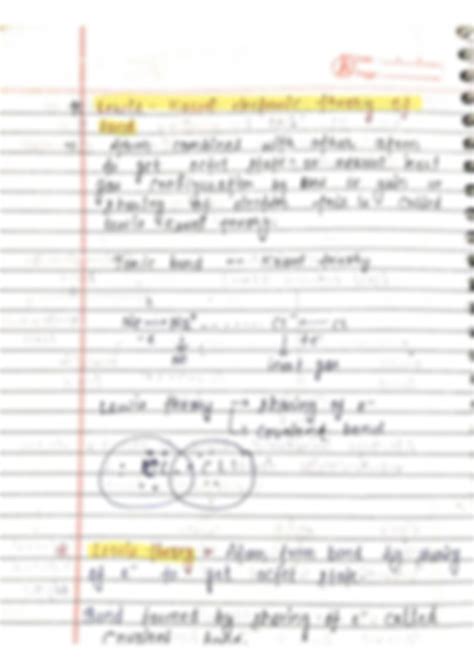 Lewis - Kossel electronic theory of
Bond
Atom combined with other atom
to get octet state or nearest inert
gas configuration by loss or gain or
sharing of electron this is called
Lewis Kossel theory.
Ionic bond -- Kossel theory
Na Na⁺ Cl⁻ Cl
-e +e⁻
inert gas
Lewis theory → sharing of e⁻
→ covalent bond
Cl Cl
Lewis theory Atom form bond by sharing
of e⁻ to get octet state.
Bond formed by sharing of e⁻ called
Covalent bond.